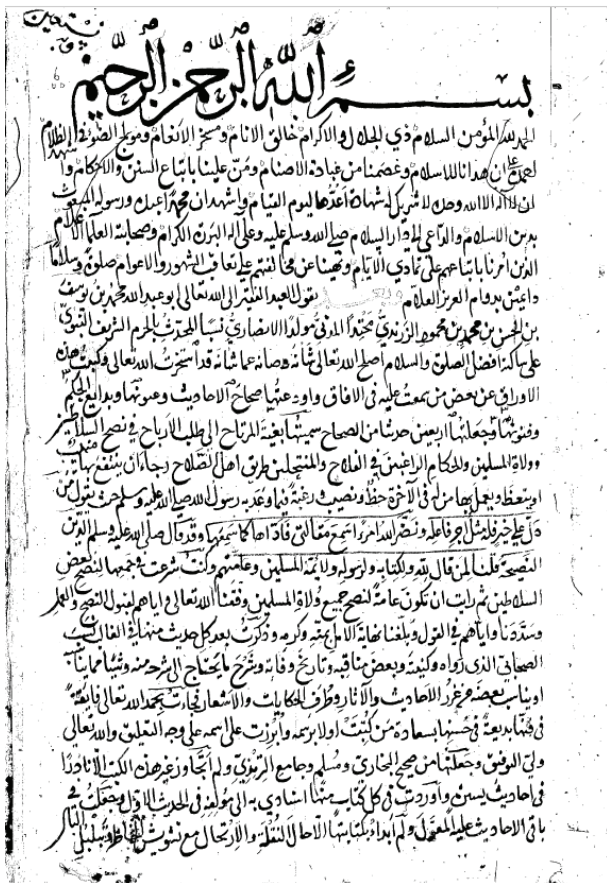 وبه نستعين
بسم الله الرحمن الرحيم
الحمد لله المؤمن السلام ذي الجلال والاكرام خالق الانام ومسخر الانعام ومولج الضوء في الظلام
ان هدانا للاسلام وعصمنا من عبادة الاصنام ومن علينا باتباع السنن والاحكام واشهد
ان لا اله الا الله وحده لا شريك له شهادة اعدها ليوم القيام واشهد ان محمدا عبده ورسوله المبعوث
بدين الاسلام والداعي الى دار السلام صلى الله وسلم عليه وعلى اله البررة الكرام وصحابته العلما الاعلام
الذين امرنا باتباعهم على تمادي الايام ونهينا عن مخالفتهم على تعاقب الشهور والاعوام صلوة وسلاما
دايمين بدوام العزيز العلام وبعد يقول العبد الفقير الى الله تعالى ابو عبد الله محمد بن يوسف
بن الحسن بن محمد بن محمود الزرندي محتدا المدني مولدا الانصاري نسبا المحدث بالحرم الشريف النبوي
على ساكنه افضل الصلوة والسلام اصلح الله تعالى شانه وصانه عما شانه قد استخرت الله تعالى وكتبت هذه
الاوراق عن بعض من سمعت عليه في الافاق واودعتها صحاح الاحاديث وعيونها وبدايع الحكم
وفنونها وجعلتها اربعين حديثا من الصحاح سميتها بغية المرتاح الى طلب الارباح في نصح السلاطين
وولاة المسلمين والحكام الراغبين في الفلاح والمنتحلين طريق اهل الصلاح رجاء ان ينتفع بها
او يتعظ ويعمل بها من له في الآخرة حظ ونصيب رغبة فيما وعد به رسول الله صلى الله عليه وسلم حيث يقول من
دل على خير فله مثل اجر فاعله ونضر الله امرءا سمع مقالتي فاداها كما سمعها وقد قال صلى الله عليه وسلم الدين
النصيحة قلنا لمن قال لله ولكتابه ولرسوله ولائمة المسلمين وعامتهم وكنت شرعت في جمعها لنصح بعض
السلاطين ثم رايت ان تكون عامة لنصح جميع ولاة المسلمين وفقنا الله تعالى واياهم لقبول النصح والعمل
وسددنا واياهم في القول وبلغنا نهاية الامل بمنه وكرمه وذكرت بعد كل حديث منها في الغالب نسب
الصحابي الذي رواه وكنيته وبعض مناقبه وتاريخ وفاته وشرح ما يحتاج الى شرحه منه وشيئا مما يناسبه
او يناسب بعضه من غرر الاحاديث والاثار وطرف الحكايات والاشعار فجاءت بحمد الله تعالى فايقة
في فنها بديعة في حسنها بسعادة من كتبت اولا برسمه وابرزت على اسمه على وجه التعليق والله تعالى
ولي التوفيق وجعلتها من صحيح البخاري ومسلم وجامع الترمذي ولم اتجاوز غير هذه الكتب الا نادرا
في احاديث يسيرة واوردت في كل كتاب منها اسنادي به الى مؤلفه في الحديث الاول وجعلت في
باقي الاحاديث عليه المعول ولم ابدا بكتابتها الا حال النقلة والارتحال مع تشويش الخاطر وتبلبل البال